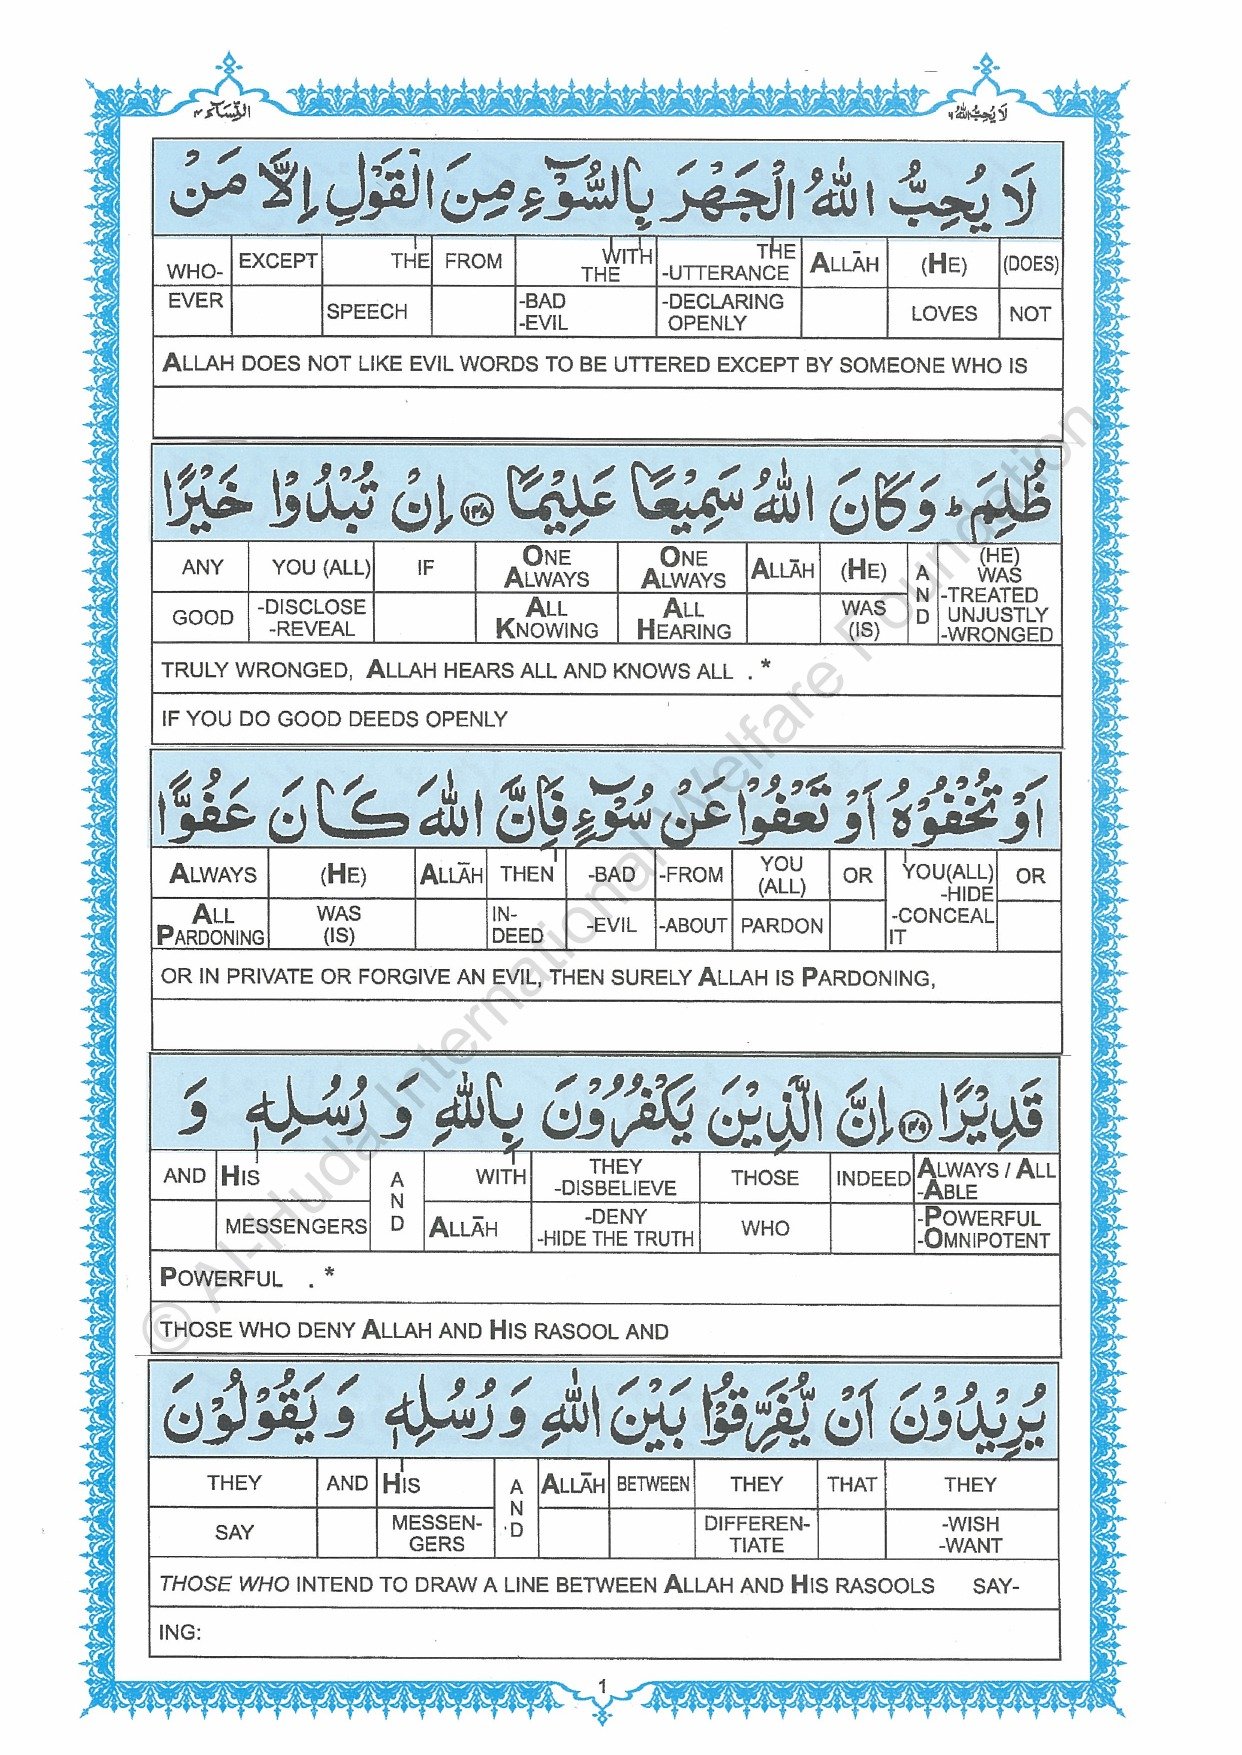 النِّسَآء ٤
لَا يُحِبُّ اللهُ ٦
لَا يُحِبُّ اللهُ الْجَهْرَ بِالسُّوْٓءِ مِنَ الْقَوْلِ اِلَّا مَنْ
WHO- EXCEPT THE FROM WITH THE THE -UTTERANCE ALLĀH (HE) (DOES)
EVER SPEECH -BAD -EVIL -DECLARING OPENLY LOVES NOT
ALLAH DOES NOT LIKE EVIL WORDS TO BE UTTERED EXCEPT BY SOMEONE WHO IS
ظُلِمَ ؕ وَكَانَ اللهُ سَمِيْعًا عَلِيْمًا ﴿۱۴۸﴾ اِنْ تُبْدُوْا خَيْرًا
ANY YOU (ALL) IF ONE ALWAYS ONE ALWAYS ALLĀH (HE) AND (HE) WAS -TREATED
GOOD -DISCLOSE -REVEAL ALL KNOWING ALL HEARING WAS (IS) UNJUSTLY -WRONGED
TRULY WRONGED, ALLAH HEARS ALL AND KNOWS ALL . *
IF YOU DO GOOD DEEDS OPENLY
اَوْ تُخْفُوْهُ اَوْ تَعْفُوْا عَنْ سُوْٓءٍ فَاِنَّ اللهَ كَانَ عَفُوًّا
ALWAYS (HE) ALLĀH THEN -BAD -FROM YOU (ALL) OR YOU(ALL) -HIDE OR
ALL PARDONING WAS (IS) IN- DEED -EVIL -ABOUT PARDON -CONCEAL IT
OR IN PRIVATE OR FORGIVE AN EVIL, THEN SURELY ALLAH IS PARDONING,
قَدِيْرًا ﴿۱۴۹﴾ اِنَّ الَّذِيْنَ يَكْفُرُوْنَ بِاللهِ وَ رُسُلِهٖ وَ
AND HIS AND WITH THEY -DISBELIEVE THOSE INDEED ALWAYS / ALL -ABLE
MESSENGERS ALLĀH -DENY -HIDE THE TRUTH WHO -POWERFUL -OMNIPOTENT
POWERFUL . *
THOSE WHO DENY ALLAH AND HIS RASOOL AND
يُرِيْدُوْنَ اَنْ يُّفَرِّقُوْا بَيْنَ اللهِ وَ رُسُلِهٖ وَ يَقُوْلُوْنَ
THEY AND HIS AND ALLĀH BETWEEN THEY THAT THEY
SAY MESSEN- GERS DIFFEREN- TIATE -WISH -WANT
THOSE WHO INTEND TO DRAW A LINE BETWEEN ALLAH AND HIS RASOOLS SAY-
ING:
1
© Al-Huda International Welfare Foundation